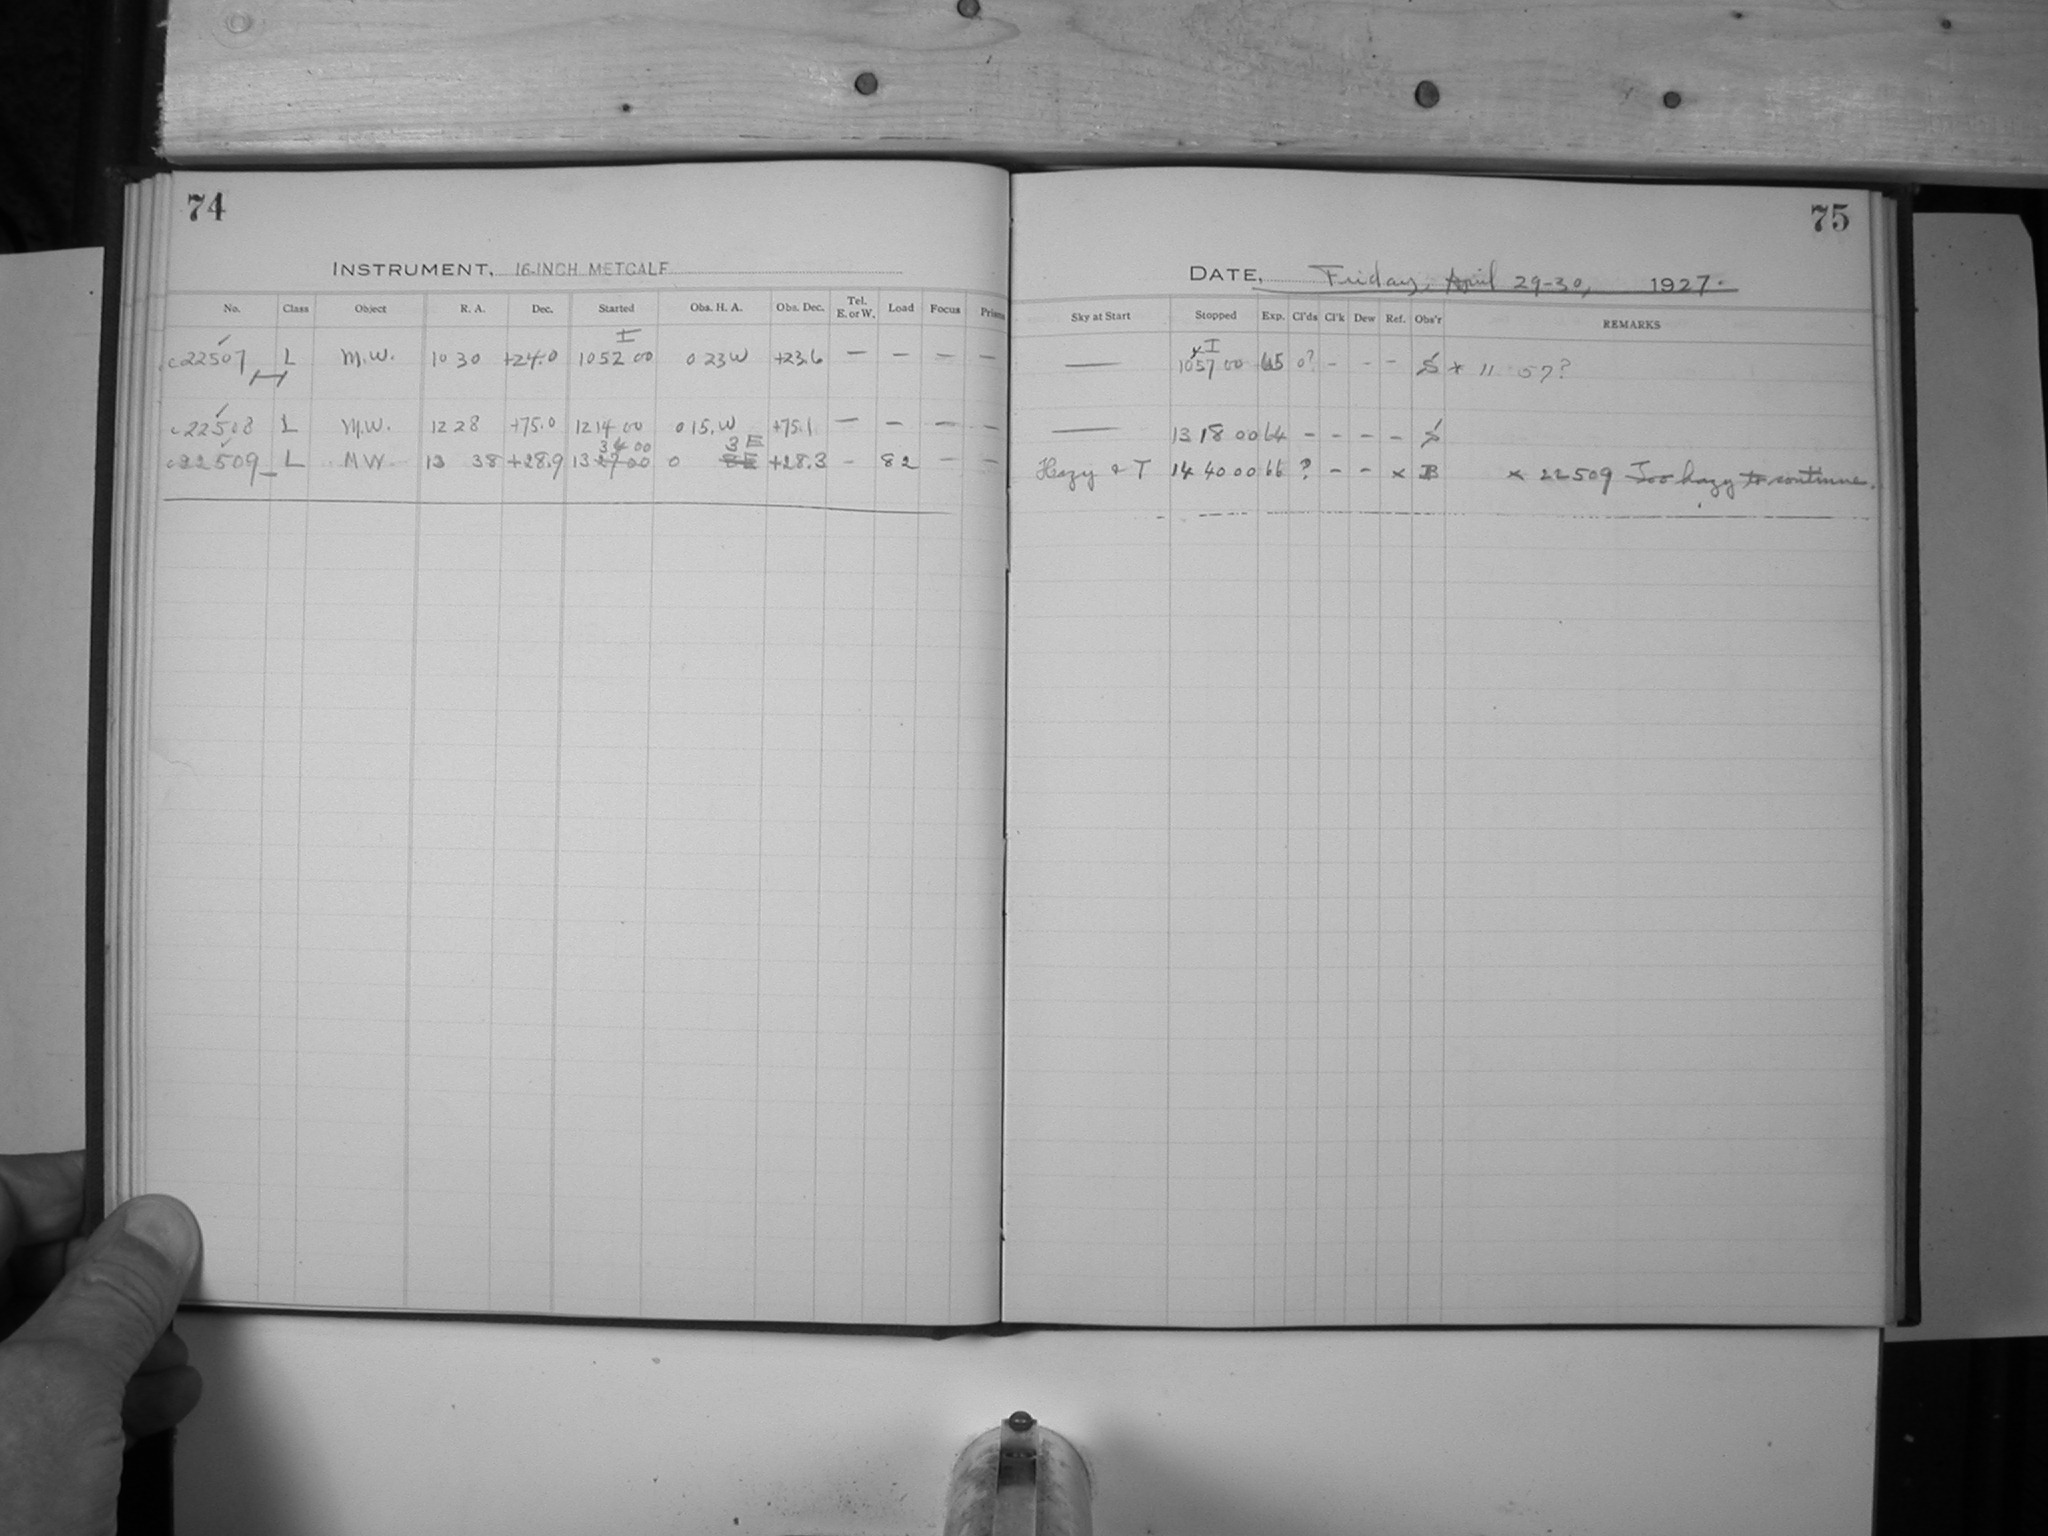 74
INSTRUMENT, 16-INCH METCALF
No. Class Object R. A. Dec. Started Obs. H. A. Obs. Dec. Tel. E. or W. Load Focus Prism
I
c22507 L M.W. 10 30 +24.0 10 52 00 0 23 W +23.6 — — — —
H
c22508 L M.W. 12 28 +75.0 12 14 00 0 15. W +75.1 — — — —
34 00 3 E
c22509 L MW. 13 38 +28.9 13 27 00 0 8E +28.3 – 82 — —
75
DATE, Friday, April 29-30, 1927.
Sky at Start Stopped Exp. Cl'ds Cl'k Dew Ref. Obs'r REMARKS
x I
— 10 57 00 65 0? – – – S * 11 57?
— 13 18 00 64 – – – – S
Hazy & T 14 40 00 66 ? – – x B x 22509 Too hazy to continue.